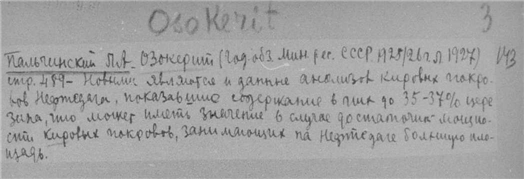 Osokerit 3
Пальчинский П.А. Озокерит (Год. обз. мин. рес. СССР 1925/26 г. Л. 1927) 143
стр. 489 - Новыми являются и данные анализов кировых покро-
вов Нефтедага, показавшие содержание в них до 35-37% цере
зина, что может иметь значение в случае достаточн. мощно-
сти кировых покровов, занимающих на Нефтедаге большую пло-
щадь.